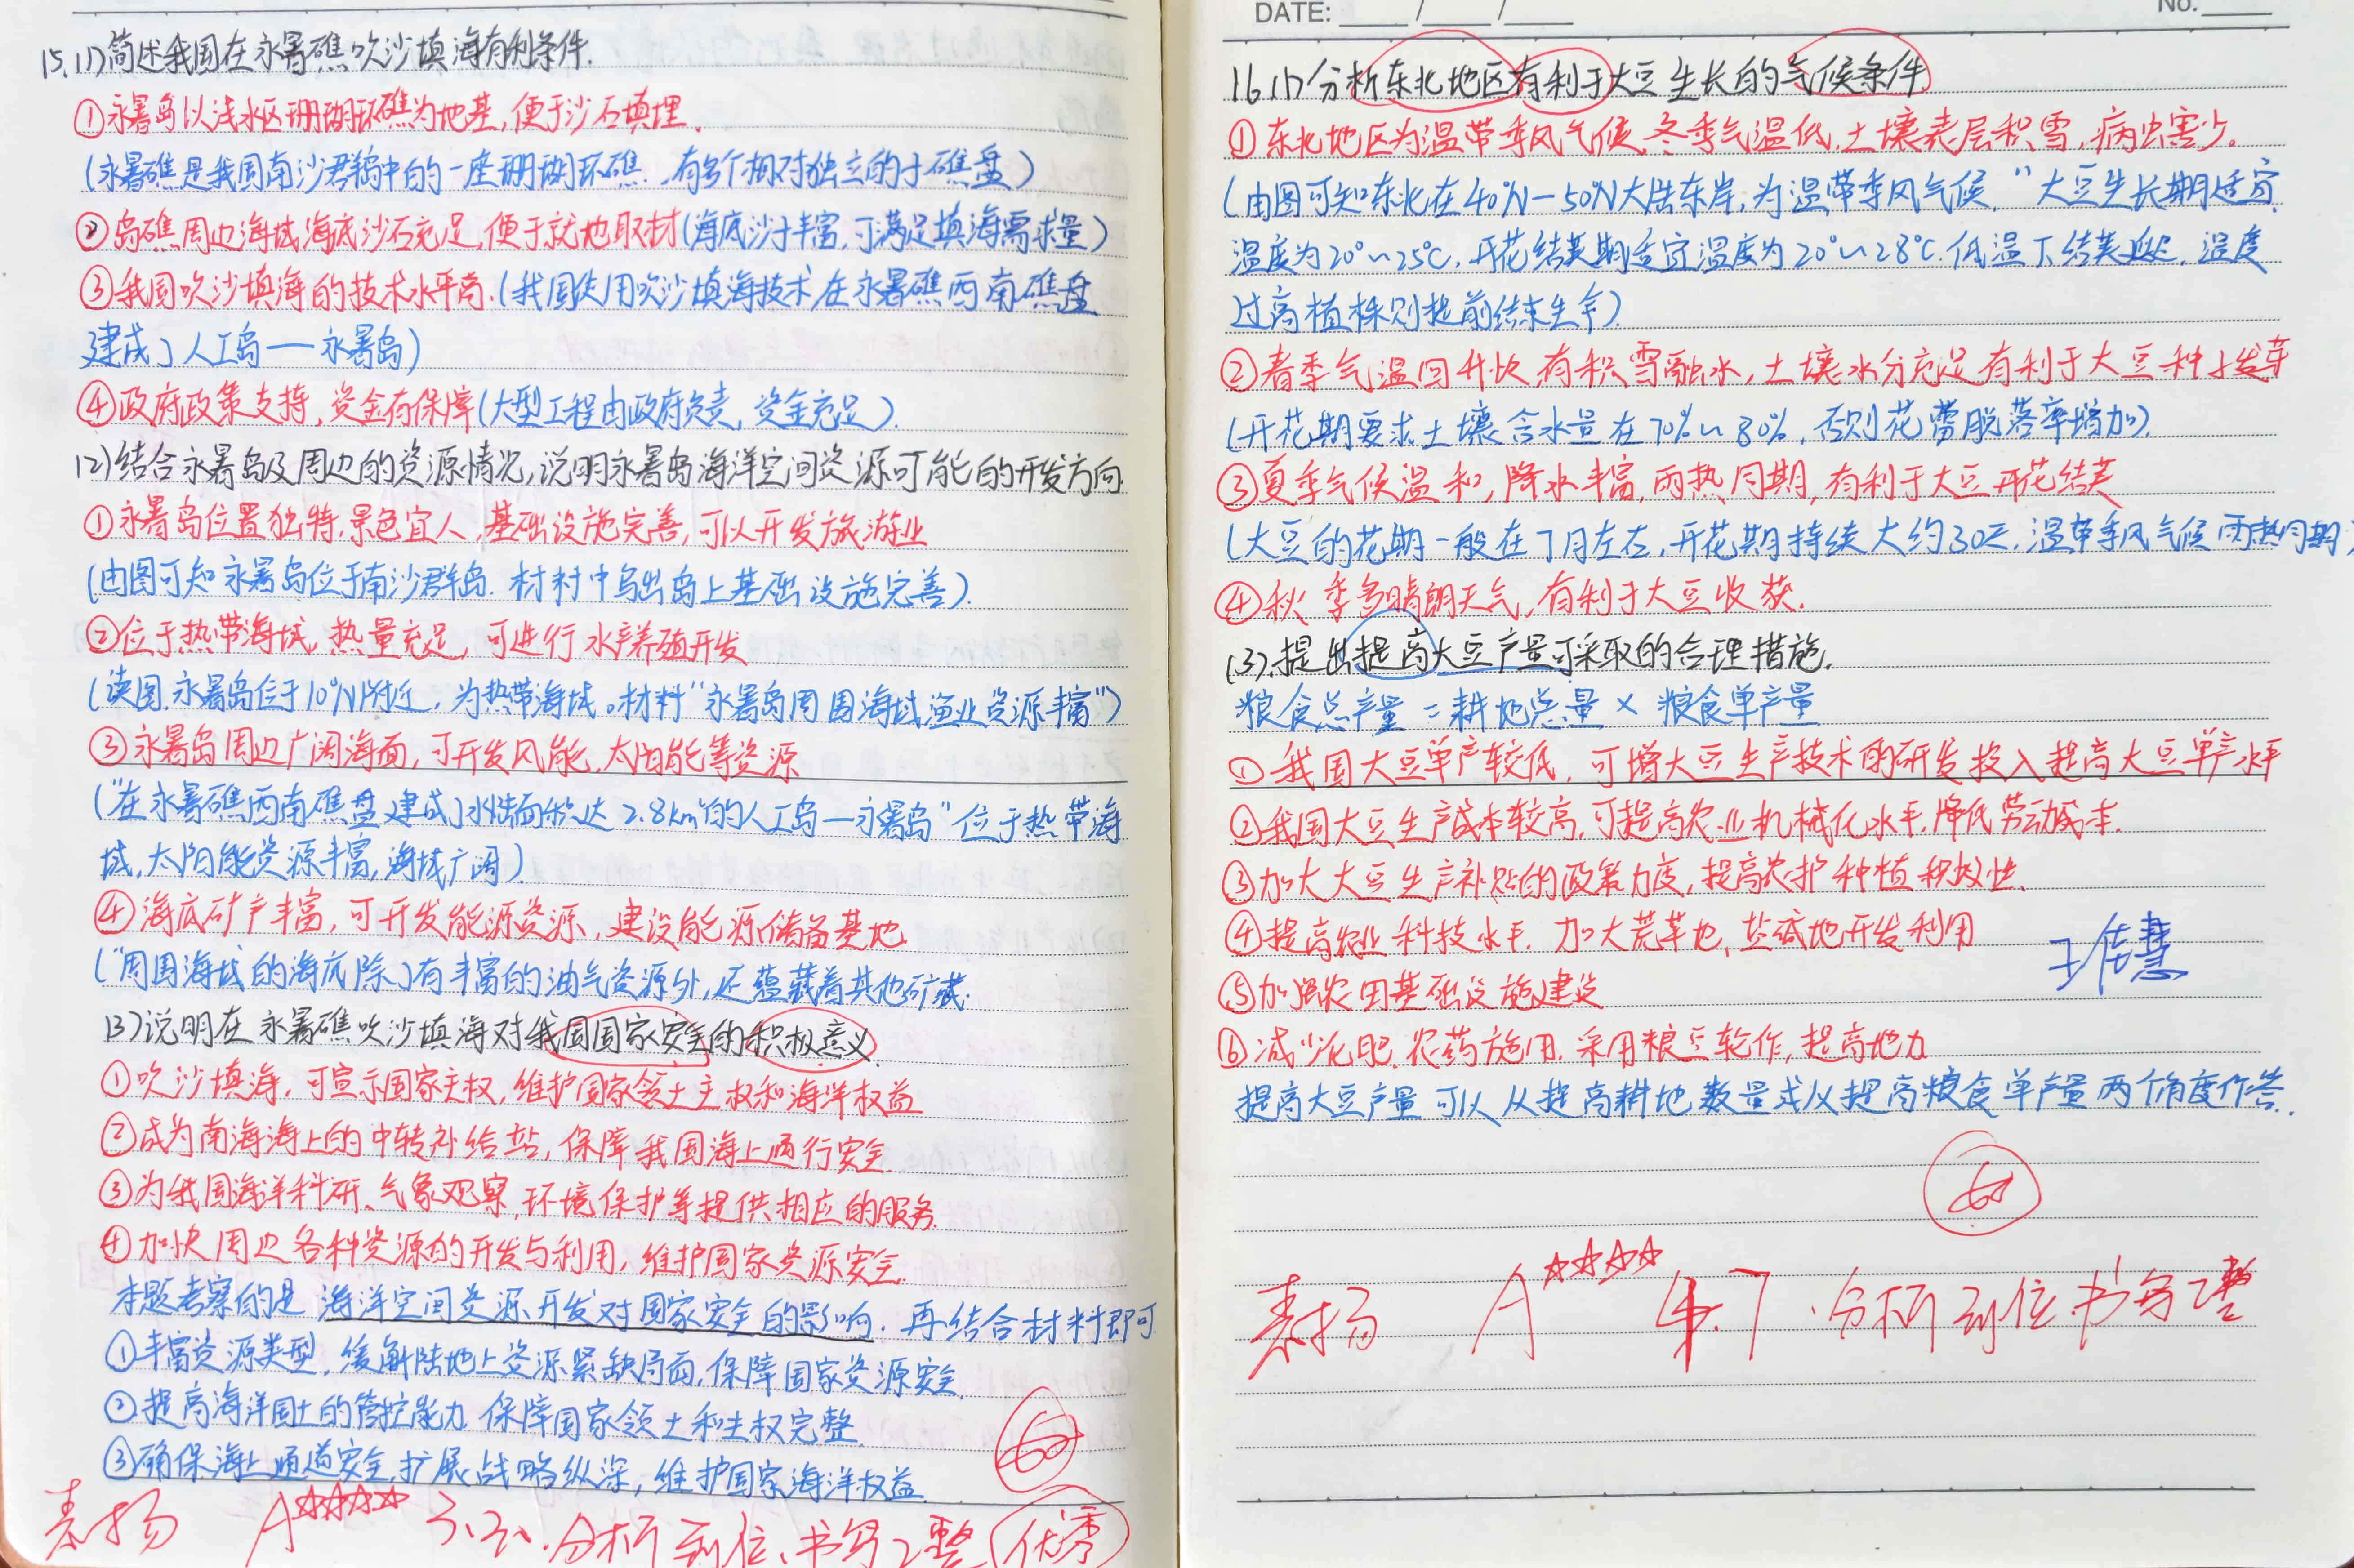 15.(1)简述我国在永暑礁吹沙填海有利条件.
①永暑岛以浅水区珊瑚环礁为地基,便于沙石填埋.
(永暑礁是我国南沙群岛中的一座珊瑚环礁,有多个相对独立的小礁盘)
②岛礁周边海域海底沙石充足,便于就地取材(海底沙子丰富,可满足填海需求量)
③我国吹沙填海的技术水平高.(我国使用吹沙填海技术在永暑礁西南礁盘
建成了人工岛——永暑岛)
④政府政策支持,资金有保障(大型工程由政府负责,资金充足).
(2)结合永暑岛及周边的资源情况,说明永暑岛海洋空间资源可能的开发方向.
①永暑岛位置独特,景色宜人,基础设施完善,可以开发旅游业
(由图可知永暑岛位于南沙群岛.材料中写出岛上基础设施完善).
②位于热带海域,热量充足,可进行水产养殖开发
(读图,永暑岛位于10°N附近,为热带海域。材料"永暑岛周围海域渔业资源丰富")
③永暑岛周边广阔海面,可开发风能,太阳能等资源
("在永暑礁西南礁盘建成了水陆面积达2.8km²的人工岛—永暑岛"位于热带海
域,太阳能资源丰富,海域广阔)
④海底矿产丰富,可开发能源资源,建设能源储备基地
("周围海域的海底除了有丰富的油气资源外,还蕴藏着其他矿藏.
(3)说明在永暑礁吹沙填海对我国国家安全的积极意义.
①吹沙填海,可宣示国家主权,维护国家领土主权和海洋权益
②成为南海海上的中转补给站,保障我国海上通行安全.
③为我国海洋科研、气象观察,环境保护等提供相应的服务.
④加快周边各种资源的开发与利用,维护国家资源安全.
本题考察的是海洋空间资源开发对国家安全的影响.再结合材料即可.
①丰富资源类型,缓解陆地上资源紧缺局面,保障国家资源安全.
②提高海洋国土的管控能力 保障国家领土和主权完整.
③确保海上通道安全,扩展战略纵深,维护国家海洋权益.
表扬 A☆☆☆☆ 3.30.分析到位、书写工整 优秀
DATE: / /
No.
16.(1)分析东北地区有利于大豆生长的气候条件
①东北地区为温带季风气候,冬季气温低,土壤表层积雪,病虫害少.
(由图可知东北在40°N-50°N大陆东岸,为温带季风气候."大豆生长期适宜
温度为20°~25℃,开花结荚期适宜温度为20°~28℃.低温下结荚延迟,温度
过高植株则提前结束生命).
②春季气温回升快,有积雪融水,土壤水分充足有利于大豆种子发芽
(开花期要求土壤含水量在70%~80%,否则花蕾脱落率增加).
③夏季气候温和,降水丰富,雨热同期,有利于大豆开花结荚
(大豆的花期一般在7月左右,开花期持续大约30天.温带季风气候雨热同期)
④秋季多晴朗天气,有利于大豆收获.
(3).提出提高大豆产量可采取的合理措施.
粮食总产量=耕地总量×粮食单产量
①我国大豆单产较低,可增大豆生产技术的研发投入提高大豆单产水平
②我国大豆生产成本较高,可提高农业机械化水平,降低劳动成本.
③加大大豆生产补贴的政策力度,提高农护种植积极性.
④提高农业科技水平.加大荒草地,盐碱地开发利用
⑤加强农田基础设施建设
⑥减少化肥.农药施用.采用粮豆轮作,提高地力
提高大豆产量可以从提高耕地数量或从提高粮食单产量两个角度作答.
表扬 A☆☆☆☆ 4.7.分析到位.书写工整